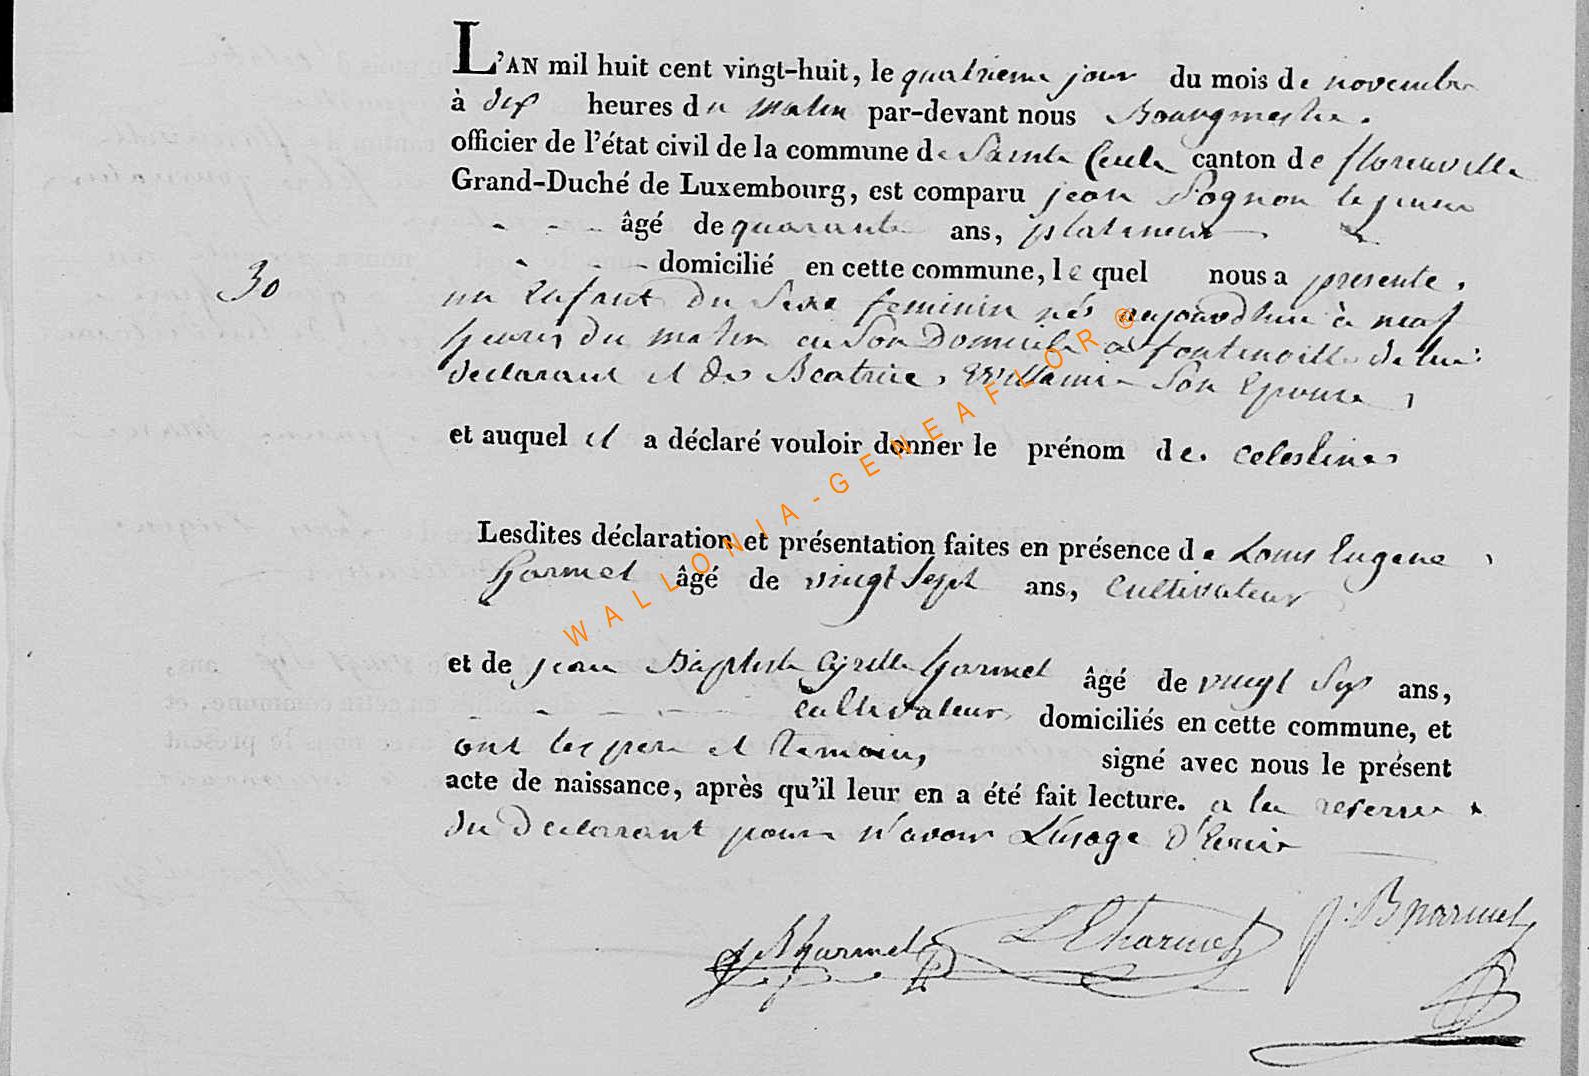 L'AN mil huit cent vingt-huit, le quatrieme jour du mois de novembre
à dix heures du matin par-devant nous Bourgmestre.
officier de l'état civil de la commune de Sainte Cecile canton de florenville
Grand-Duché de Luxembourg, est comparu jean Pognon le jeune
- - - âgé de quarante ans, platineur
- - - domicilié en cette commune, lequel nous a presente.
30
un Enfant du Sexe feminin né aujourdhui à neuf
heures du matin en Son Domicile a fontenoille de lui
declarant et de Beatrice, Willaime Son Epouse,
et auquel il a déclaré vouloir donner le prénom de. celestine
Lesdites déclaration et présentation faites en présence de Louis Eugene
harmel âgé de vingt Sept ans, Cultivateur
et de jean Baptiste Cyrille harmel âgé de vingt Six ans,
cultivateur domiciliés en cette commune, et
ont les pere et temoins, signé avec nous le présent
acte de naissance, après qu'il leur en a été fait lecture. a la reserve
du declarant pour n'avoir L'usage d'Ecrir
J B harmel L E harmel J: B harmel
WALLONIA-GENEAFLOR®